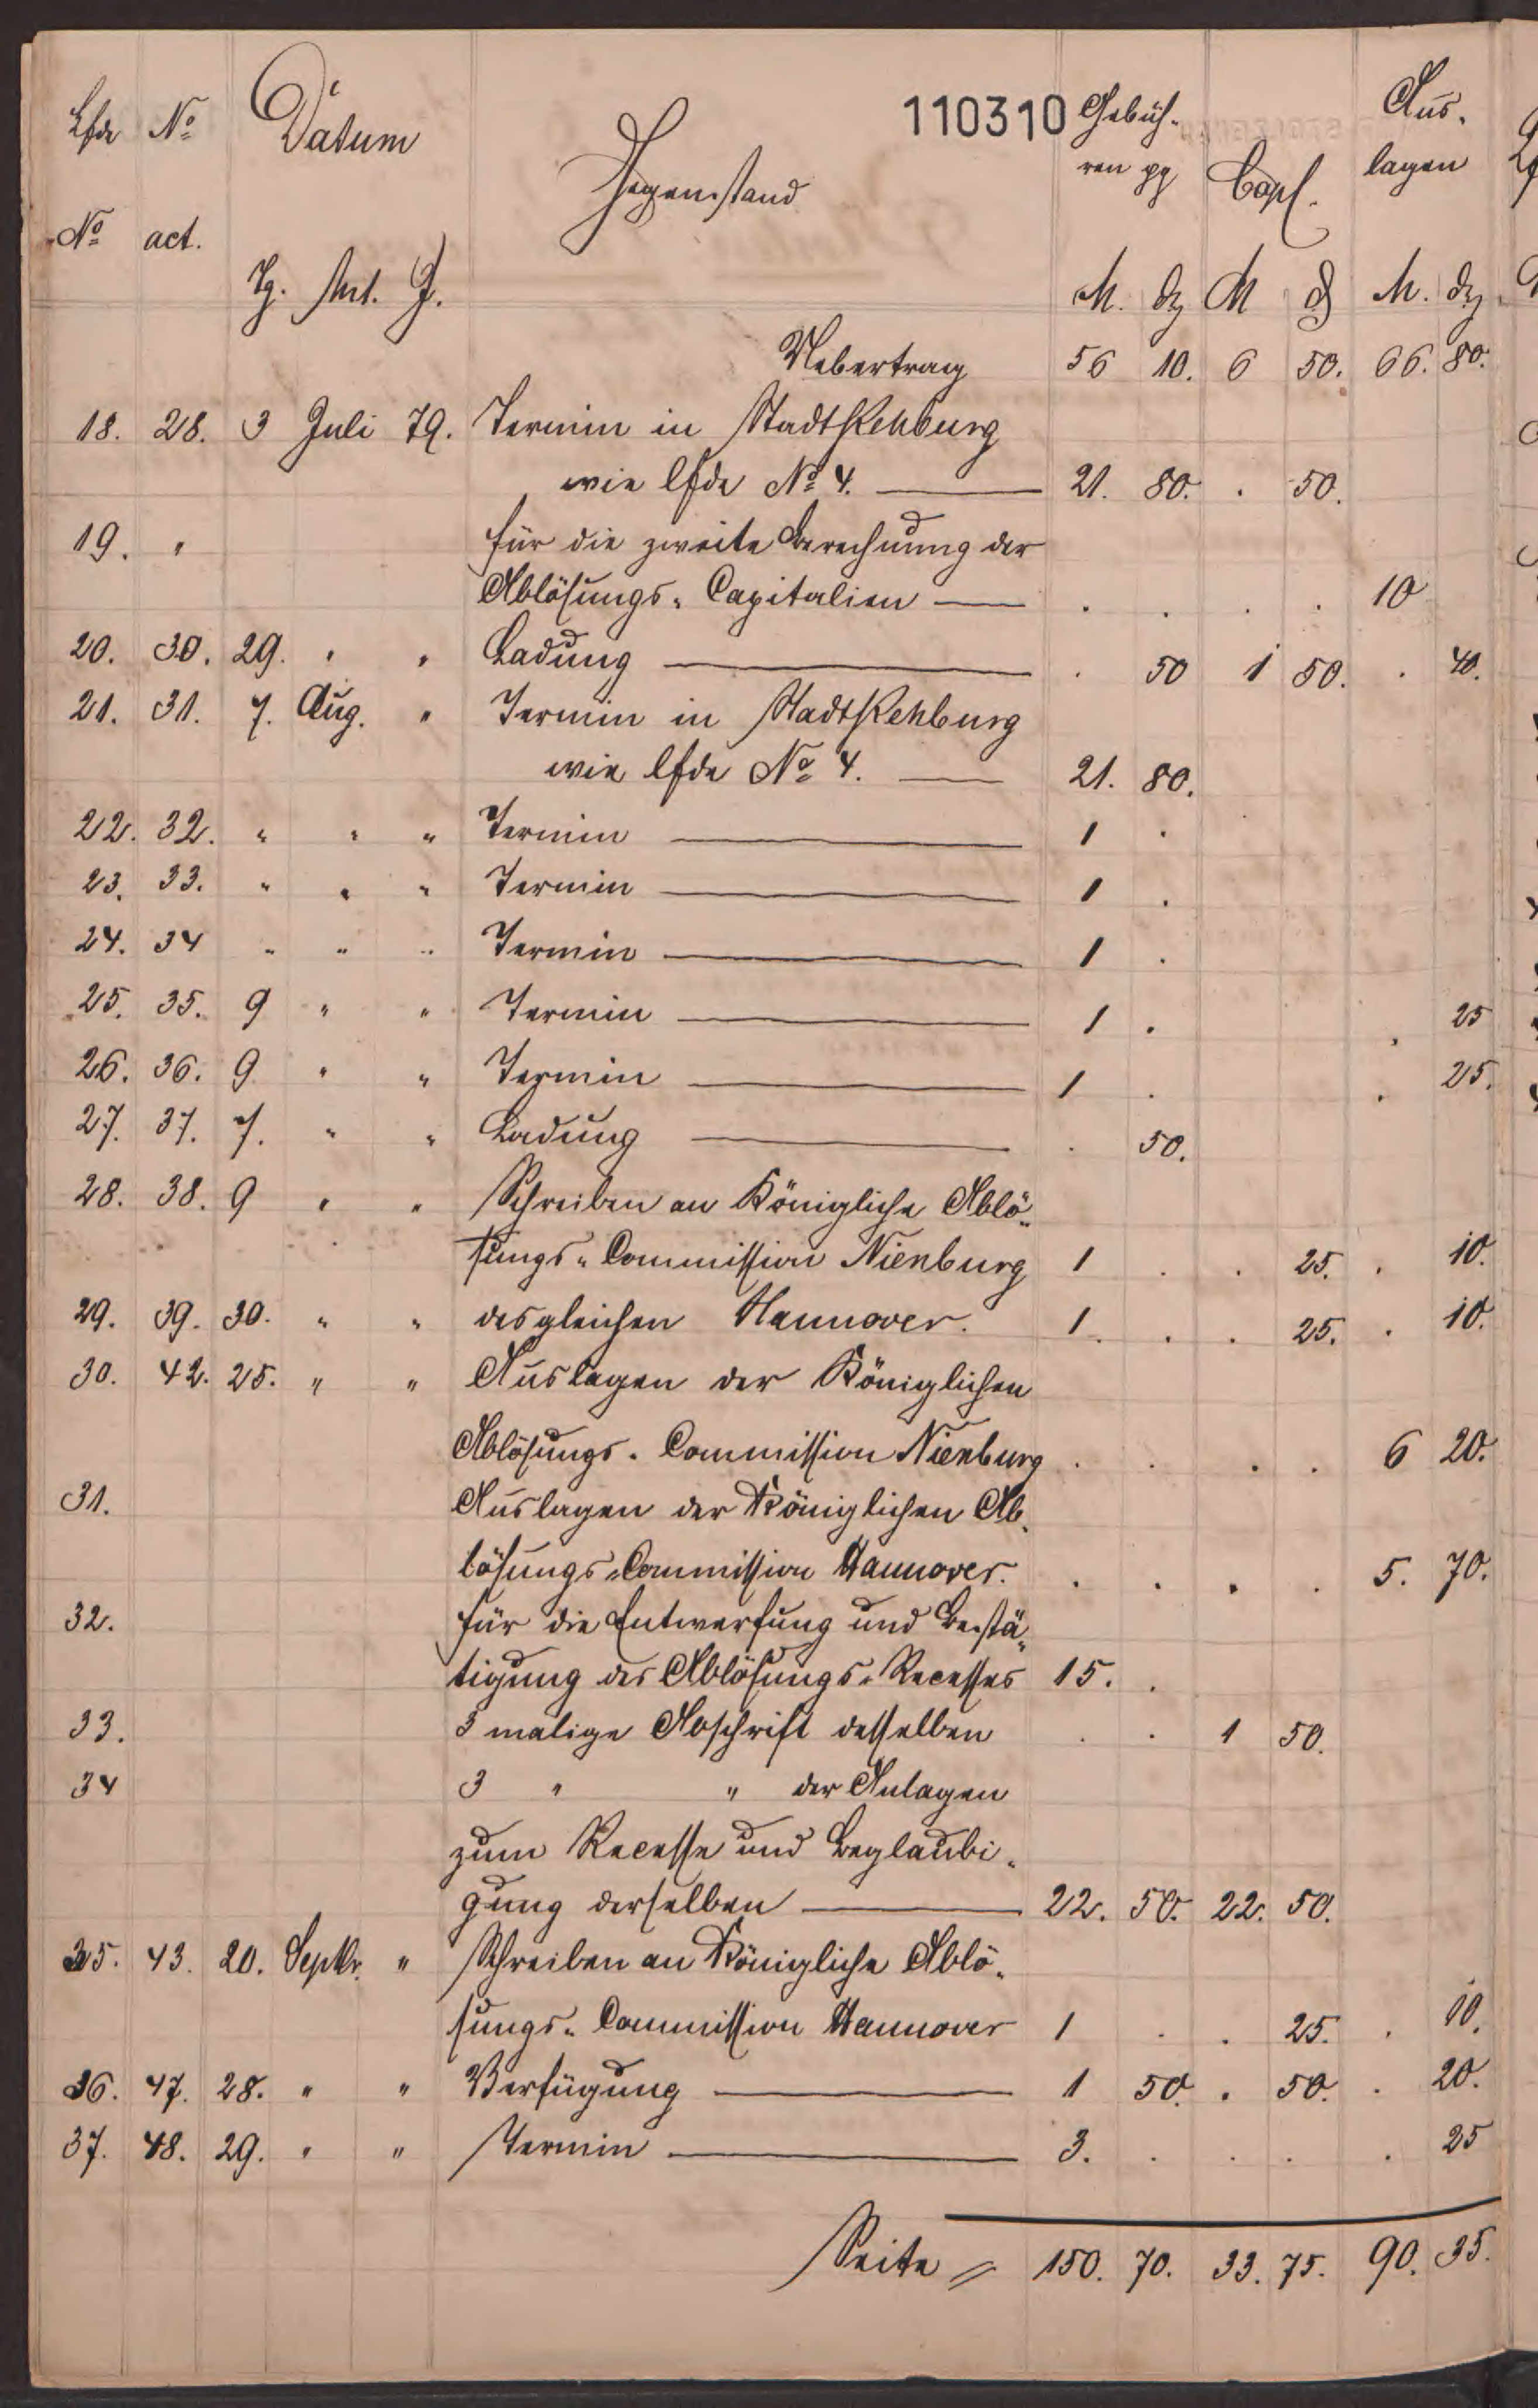 110310
Lfde No Datum Gegenstand Gebüh- Copl. Aus-
No act. ren pp lagen
Tg. Mt. J. M. ₰ M ₰ M. ₰
Uebertrag 56 10. 6 50. 66. 80.
18. 28. 3 Juli 79. Termin in Stadt Rehburg
wie lfde No 4. — 21. 80. . 50.
19. " für die zweite Berechnung der
Ablösungs-Capitalien — . . . . 10
20. 30. 29. " " Ladung — . 50 1 50. . 40.
21. 31. 7. Aug. " Termin in Stadt Rehburg
wie lfde No 4. — 21. 80.
22. 32. " " " Termin — 1 .
23. 33. " " " Termin — 1 .
24. 34 " " " Termin — 1 .
25. 35. 9 " " Termin — 1 . . 25
26. 36. 9 " " Termin — 1 . . 25.
27. 37. 7. " " Ladung — . 50.
28. 38. 9 " " Schreiben an Königliche Ablö-
sungs-Commission Nienburg 1 . . 25. . 10.
29. 39. 30. " " desgleichen Hannover. 1. . . 25. . 10.
30. 42. 25. " " Auslagen der Königlichen
Ablösungs-Commission Nienburg . . . . 6 20.
31. Auslagen der Königlichen Ab-
lösungs-Commission Hannover. . . . . 5. 70.
32. für die Entwerfung und Bestä-
tigung des Ablösungs-Recesses 15. .
33. 3 malige Abschrift desselben . . 1 50.
34 3 " " der Anlagen
zum Recesse und Beglaubi-
gung derselben — 22. 50. 22. 50.
35. 43. 20. Septbr. " Schreiben an Königliche Ablö-
sungs-Commission Hannover 1 . . 25. . 10.
36. 47. 28. " " Verfügung — 1 50. . 50. . 20.
37. 48. 29. " " Termin — 3. . . . . 25
Seite = 150. 70. 33. 75. 90. 35.